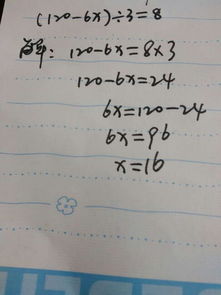 (120-6x)÷3=8
解: 120-6x=8×3
120-6x=24
6x=120-24
6x=96
x=16